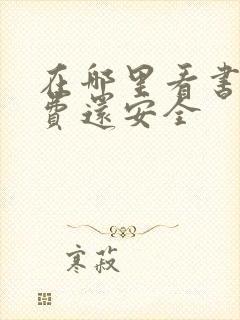 在哪里看书
费还安全
寒菽